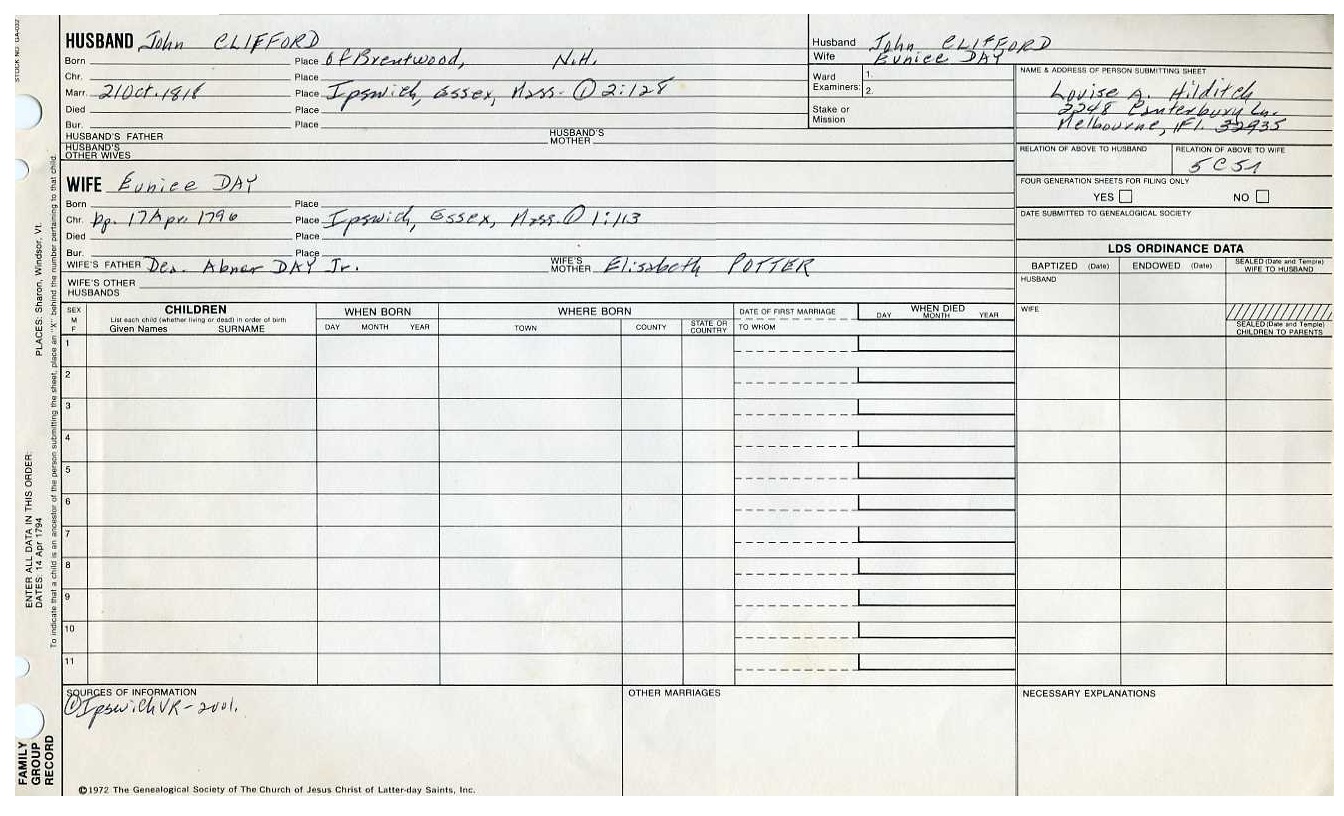 STOCK NO. GA-032
HUSBAND John CLIFFORD
Born Place of Brentwood, N.H.
Chr. Place
Marr. 21 Oct. 1818 Place Ipswich, Essex, Mass. ① 2:128
Died Place
Bur. Place
HUSBAND'S FATHER HUSBAND'S MOTHER
HUSBAND'S OTHER WIVES
Husband John CLIFFORD
Wife Eunice DAY
Ward Examiners: 1. 2.
Stake or Mission
NAME & ADDRESS OF PERSON SUBMITTING SHEET
Louise A. Hilditch
2248 Canterbury Ln.
Melbourne, Fl. 32935
RELATION OF ABOVE TO HUSBAND RELATION OF ABOVE TO WIFE
FOUR GENERATION SHEETS FOR FILING ONLY
YES NO
DATE SUBMITTED TO GENEALOGICAL SOCIETY
WIFE Eunice DAY
Born Place
Chr. bp. 17 Apr. 1796 Place Ipswich, Essex, Mass. ① 1:113
Died Place
Bur. Place
WIFE'S FATHER Dea. Abner DAY Jr. WIFE'S MOTHER Elisabeth POTTER
WIFE'S OTHER HUSBANDS
LDS ORDINANCE DATA
BAPTIZED (Date) ENDOWED (Date) SEALED (Date and Temple) WIFE TO HUSBAND
HUSBAND
WIFE
SEALED (Date and Temple) CHILDREN TO PARENTS
SEX M F
CHILDREN
List each child (whether living or dead) in order of birth
Given Names SURNAME
WHEN BORN
DAY MONTH YEAR
WHERE BORN
TOWN COUNTY STATE OR COUNTRY
DATE OF FIRST MARRIAGE
TO WHOM
WHEN DIED
DAY MONTH YEAR
1
2
3
4
5
6
7
8
9
10
11
SOURCES OF INFORMATION
① Ipswich VR - 2001.
OTHER MARRIAGES
NECESSARY EXPLANATIONS
©1972 The Genealogical Society of The Church of Jesus Christ of Latter-day Saints, Inc.
FAMILY
GROUP
RECORD
ENTER ALL DATA IN THIS ORDER:
DATES: 14 Apr 1794 PLACES: Sharon, Windsor, Vt.
To indicate that a child is an ancestor of the person submitting the sheet, place an "X" behind the number pertaining to that child.